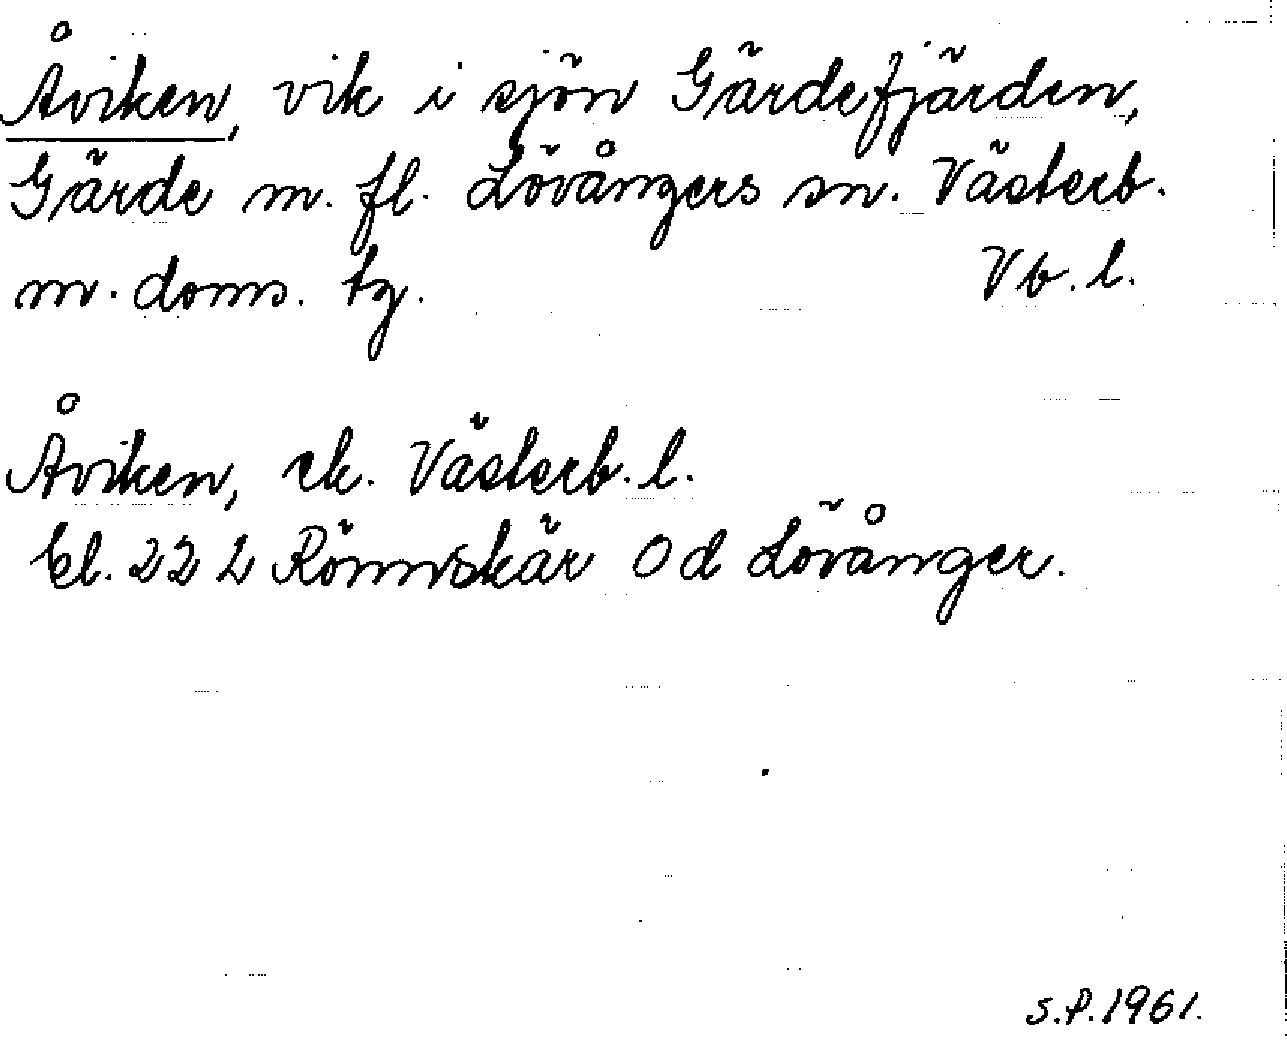 Åviken, vik i sjön Gärdefjärden,
Gärde m. fl. Lövångers sn. Västerb.
m. doms. tg. Vb. l.
Åviken, ek. Västerb. l.
bl. 22 L Rönnskär Od Lövånger.
S.P. 1961.